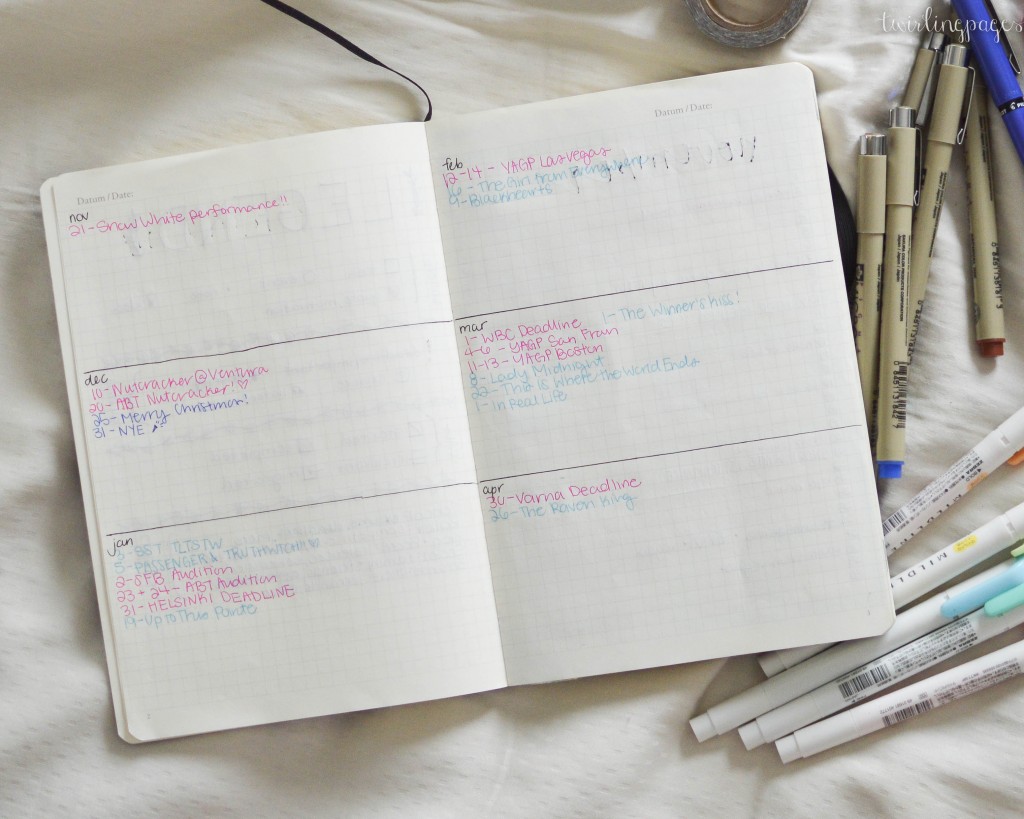 twirlingpages
Datum / Date:
nov
21-Snow White performance!!
dec
10-Nutcracker@Ventura
20-ABT Nutcracker!♡
25-Merry Christmas!
31-NYE
jan
5-PASSENGER & TRUTHWITCH
2-SFB Audition
23 + 24-ABT Audition
31-HELSINKI DEADLINE
19-Up to This Pointe
Datum / Date:
feb
12-14-YAGP Las Vegas
16-The Girl from Everywhere
9-Blackhearts
mar
1-WBC Deadline 1-The Winner's Kiss!
4-6-YAGP San Fran
11-13-YAGP Boston
8-Lady Midnight
22-This is Where the World Ends
1-In Real Life
apr
30-Varna Deadline
26-The Raven King
MILDLI